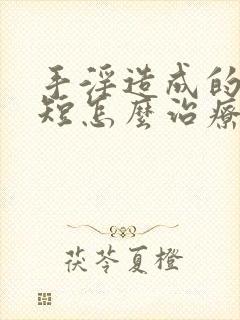 手淫造成的
短怎麼治療
茯苓夏橙